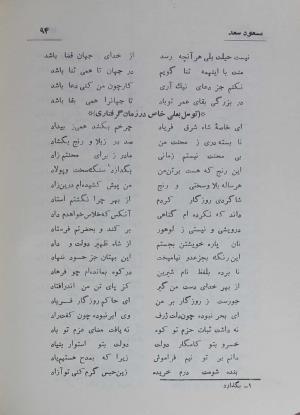 مسعود سعد ۹۴
نیست حیلت بلی هر آنچه رسد از خدای جهان قضا باشد
منت با اینهمه ثنا گویم در جهان تا همی ثنا باشد
نکنم جز دعای نیک آری از چو من دوستی دعا باشد
در بزرگی بقای عمر تو باد تا جهانرا همی بقا باشد
(توسل بعلی خاص در زمان گرفتاری)
ای خاصهٔ شاه شرق فریاد چرخم بکشد همی ز بیداد
نا بسته دری ز محنت من صد در ز بلا و رنج بگشاد
بی محنت نیستم زمانی مادر ز برای محنتم زاد
این رنج که هست بر تن من بگدازد سنگ سخت و پولاد
هر ساله بلا و سختی و رنج من پیش کشیده‌ام درین زاد
شاگردی روزگار کردم از بهر چرا نگشتم استاد
والله که نکرده ام گناهی آنکس که خلاص خواهدم داد
درویشی و نیستی ز لوهور بر کند و بحضرتم فرستاد
نان پاره خویشتن بجستم از شاه ظهیر دولت و داد
این رنگ بجز عدو نیامیخت این بهتان جز حسود ننهاد
نا برده بلفظ نام شیرین در کوه بمانده‌ام چو فرهاد
از بهر خدای دست من گیر کز پای تن من اندر افتاد
جورست ز روزگار بر من ای حاکم روزگار فریاد
ای بحر نبوده چون دلت ژرف وی ابر نبوده چون کفت راد
نه داشت ثبات حزم تو کوه نه یافت مضای عزم تو باد
خسرو بتو کامکار دولت دولت بتو استوار بنیاد
دانم بر تو نیم فراموش زیرا که بمدح هستیم یاد
بنده شومت درم خریده زین حبس گرم کنی تو آزاد
۱ـ بگذارد